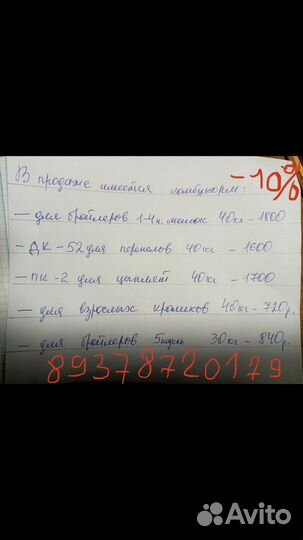 В продаже имеется комбикорм: -10%
— для бройлеров 1-4 н. мешок 40кг - 1800
— ДК - 52 для перепелов 40кг - 1600
— ПК - 2 для цыплят 40кг - 1700
— для взрослых кроликов 40кг - 720р.
— для бройлеров 5недель 30кг - 840р.
89378720179
Avito